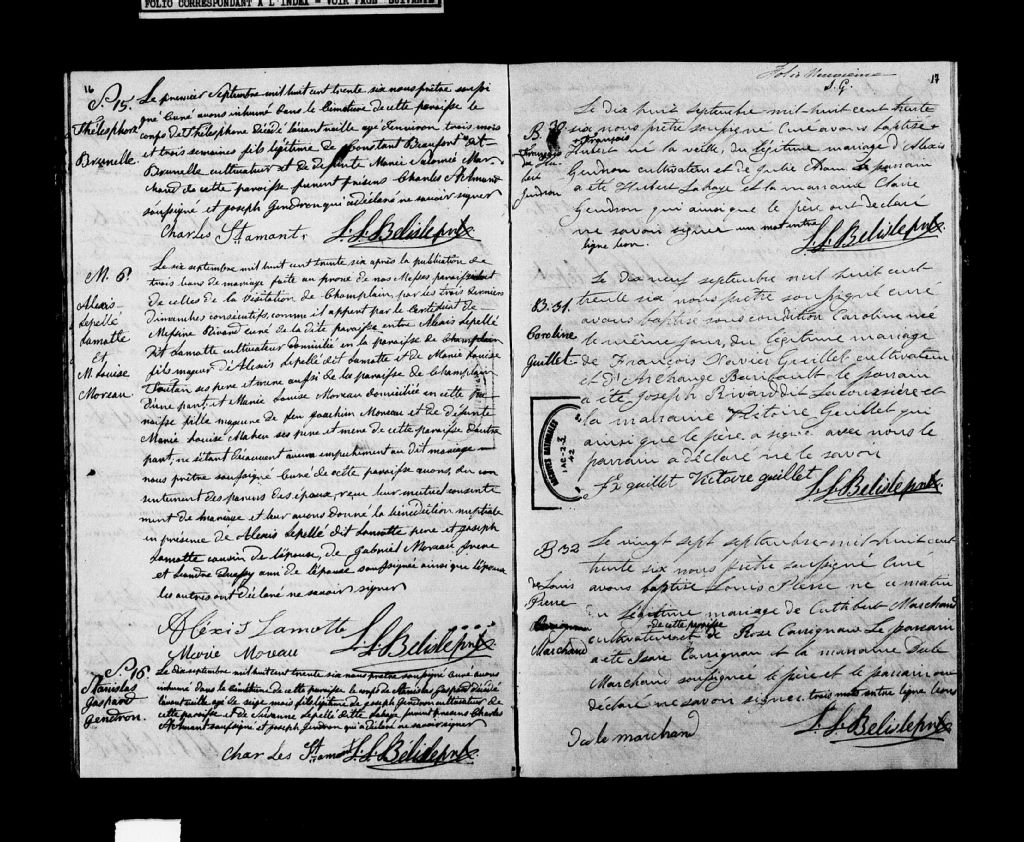 FOLIO CORRESPONDANT A L'INDEX - VOIR PAGE SUIVANTE
16
S. 15.
Thélesphore
Brunelle.
Le premier septembre mil huit cent trente six nous prêtre soussi
gné Curé avons inhumé dans le Cimetière de cette paroisse le
corps de Thélesphore décédé l'avant veille agé d'environ trois mois
et trois semaines fils légitime de Constant Beaufort dit
Brunelle cultivateur et de défunte Marie Salomée Mar
chand de cette paroisse furent présens Charles St Amand
soussigné et Joseph Gendron qui a déclaré ne savoir signer
Charles St amant. L. L. Belisle ptre
M. 6.
Alexis
Lepellé
Lamotte
et
M. Louise
Moreau
Le six septembre mil huit cent trente six après la publication de
trois bans de mariage faite au prone de nos Messes paroissiales et
de celles de la Visitation de Champlain, par les trois derniers
dimanches consécutifs, comme il appert par le Certificat de
Messire Rivard curé de la dite paroisse entre Alexis Lepellé
dit Lamotte cultivateur domicilié en la paroisse de Champlain
fils majeur d'Alexis Lepellé dit Lamotte et de Marie Louise
Toutan ses père et mère aussi de la paroisse de Champlain
d'une part, et Marie Louise Moreau domiciliée en cette pa
roisse fille majeure de feu Joachim Moreau et de défunte
Marie Louise Maheu ses père et mère de cette paroisse d'autre
part; ne s'étant découvert aucun empêchement au dit mariage
nous prêtre soussigné Curé de cette paroisse avons du con
sentement des parens des époux, reçu leur mutuel consente
ment de mariage et leur avons donné la bénédiction nuptiale
en présence de Alexis Lepellé dit Lamotte père et Joseph
Lamotte cousin de l'époux, de Gabriel Moreau frère
et ami de l'épouse soussignée ainsi que l'époux
les autres ont déclaré ne savoir signer
Aléxis Lamotte
Marie Moreau L. L. Belisle ptre
S. 16.
Stanislas
Gaspard
Gendron.
Le dix septembre mil huit cent trente six nous prêtre soussigné Curé avons
inhumé dans le Cimetière de cette paroisse le corps de Stanislas Gaspard décédé
l'avant veille agé de seize mois fils légitime de Joseph Gendron cultivateur de
cette paroisse et de Suzanne Lepellé dit Lahaye furent présens Charles
St Amant soussigné et Joseph Gendron qui a déclaré ne savoir signer
Charles St amant L. L. Belisle ptre
17
Folio Neuvième
J. G.
B. 30
François
Hu
bert
Gendron
Le dix huit septembre mil huit cent trente
six nous prêtre soussigné Curé avons baptisé
François
Hubert né la veille, du légitime mariage d'Alexis
Gendron cultivateur et de Julie le parrain
a été Hubert Lahaye et la marraine Claire
Gendron qui ainsi que le père ont déclaré
ne savoir signer un mot entre
ligne bon. L. L. Belisle ptre
B. 31.
Caroline
Guillet
Le dix neuf septembre mil huit cent
trente six nous prêtre soussigné curé
avons baptisé sous condition Caroline née
le même jour, du légitime mariage
de François Xavier Guillet cultivateur
et d'Archange le parrain
a été Joseph Rivard dit Lacoursière et
la marraine Victoire Guillet qui
ainsi que le père a signé avec nous le
parrain a déclaré ne le savoir
Fx guillet Victoire guillet L. L. Belisle ptre
ARCHIVES NATIONALES
B 32
Louis
Pierre
Marchand
Le vingt sept septembre mil huit cent
trente six nous prêtre soussigné Curé
avons baptisé Louis Pierre né ce matin
du légitime mariage de Cuthbert Marchand
de cette paroisse
cultivateur et de Rose Carrignan Le parrain
a été Isaie Carrignan et la marraine Dule
Marchand soussignée le père et le parrain ont
déclaré ne savoir signer. trois mots entre ligne bons
Dule marchand L. L. Belisle ptre